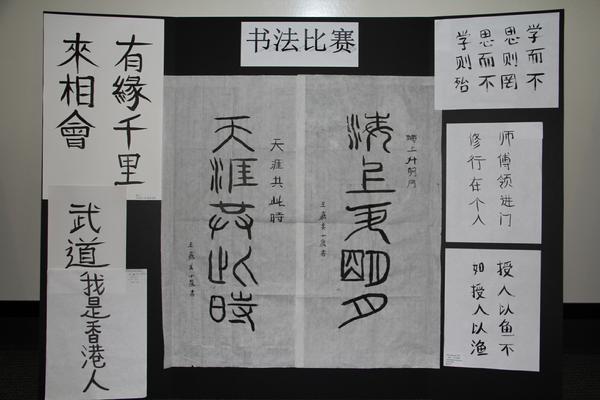 书法比赛
有緣千里
來相會
武道
我是香港人
海上升明月
海上升明月
天涯共此時
天涯共此時
学而不
思则罔
思而不
学则殆
师傅领进门
修行在个人
授人以鱼不
如授人以渔